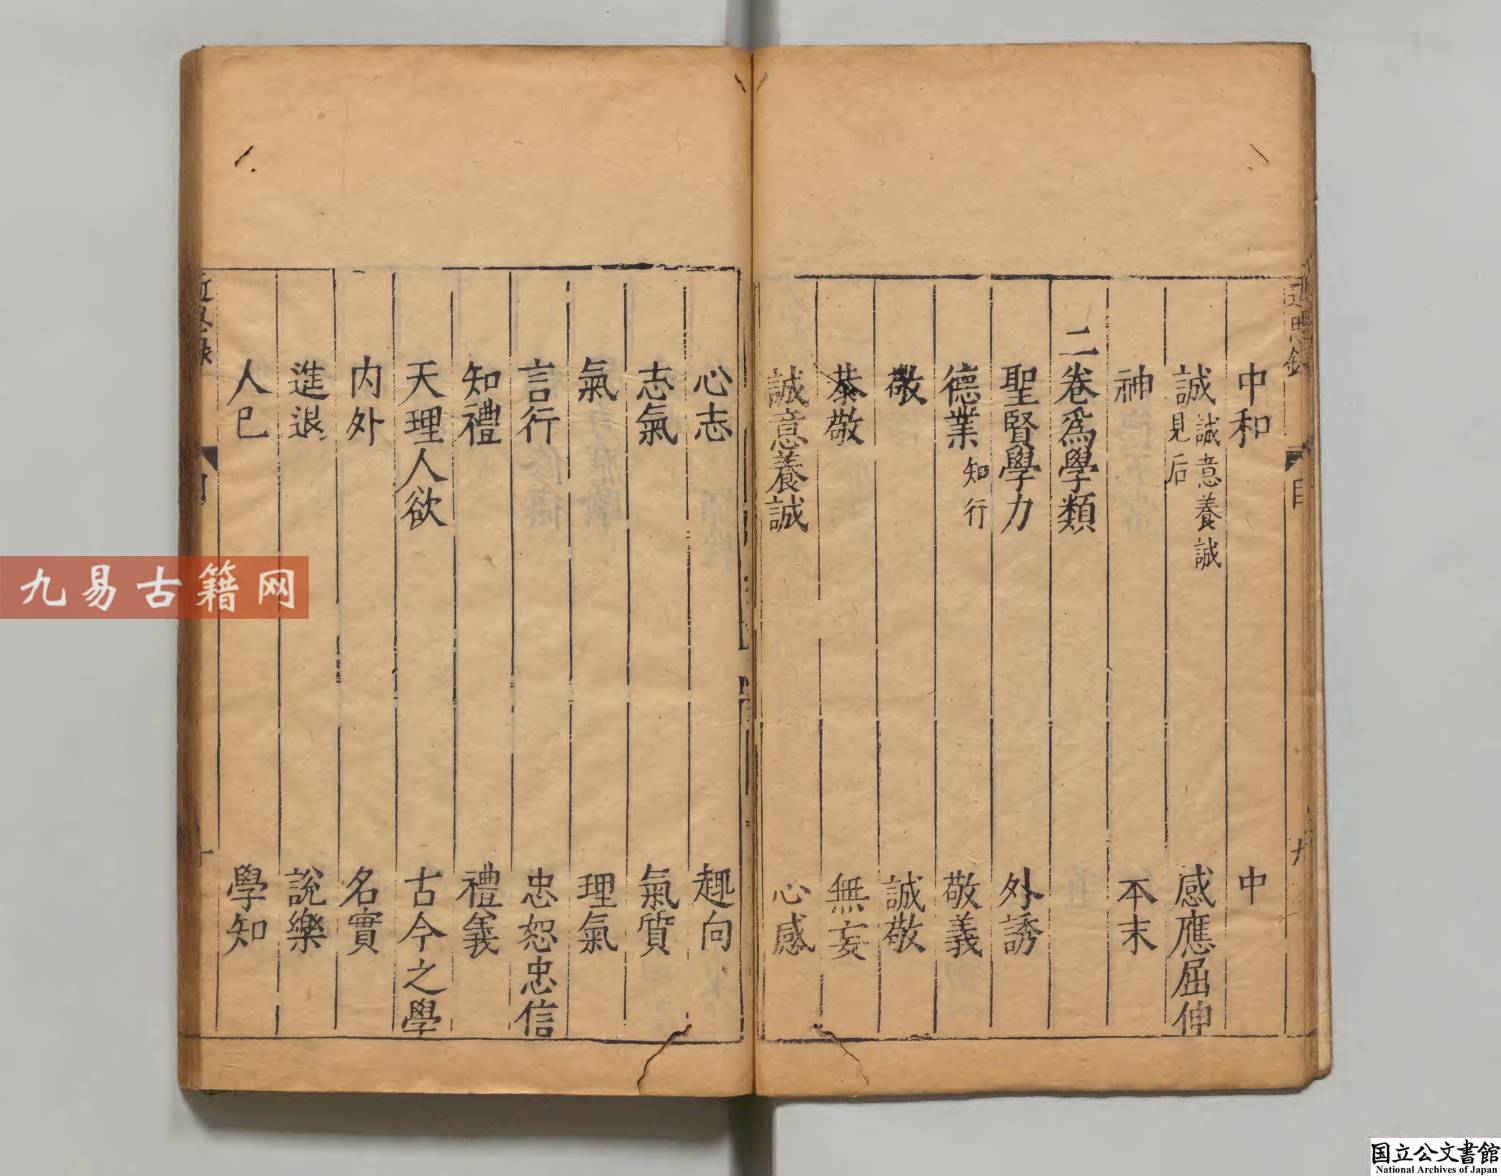 中和　中
誠　誠意養誠見后　感應屈伸
神　本末
二卷為學類
聖賢學力　外誘
德業　知行　敬義
敬　誠敬
恭敬　無妄
誠意養誠　心感
心志　趣向
志氣　氣質
氣　理氣
言行　忠恕忠信
知禮　禮義
天理人欲　古今之學
內外　名實
進退　說樂
人己　學知
近思錄
九易古籍网
国立公文書館
National Archives of Japan